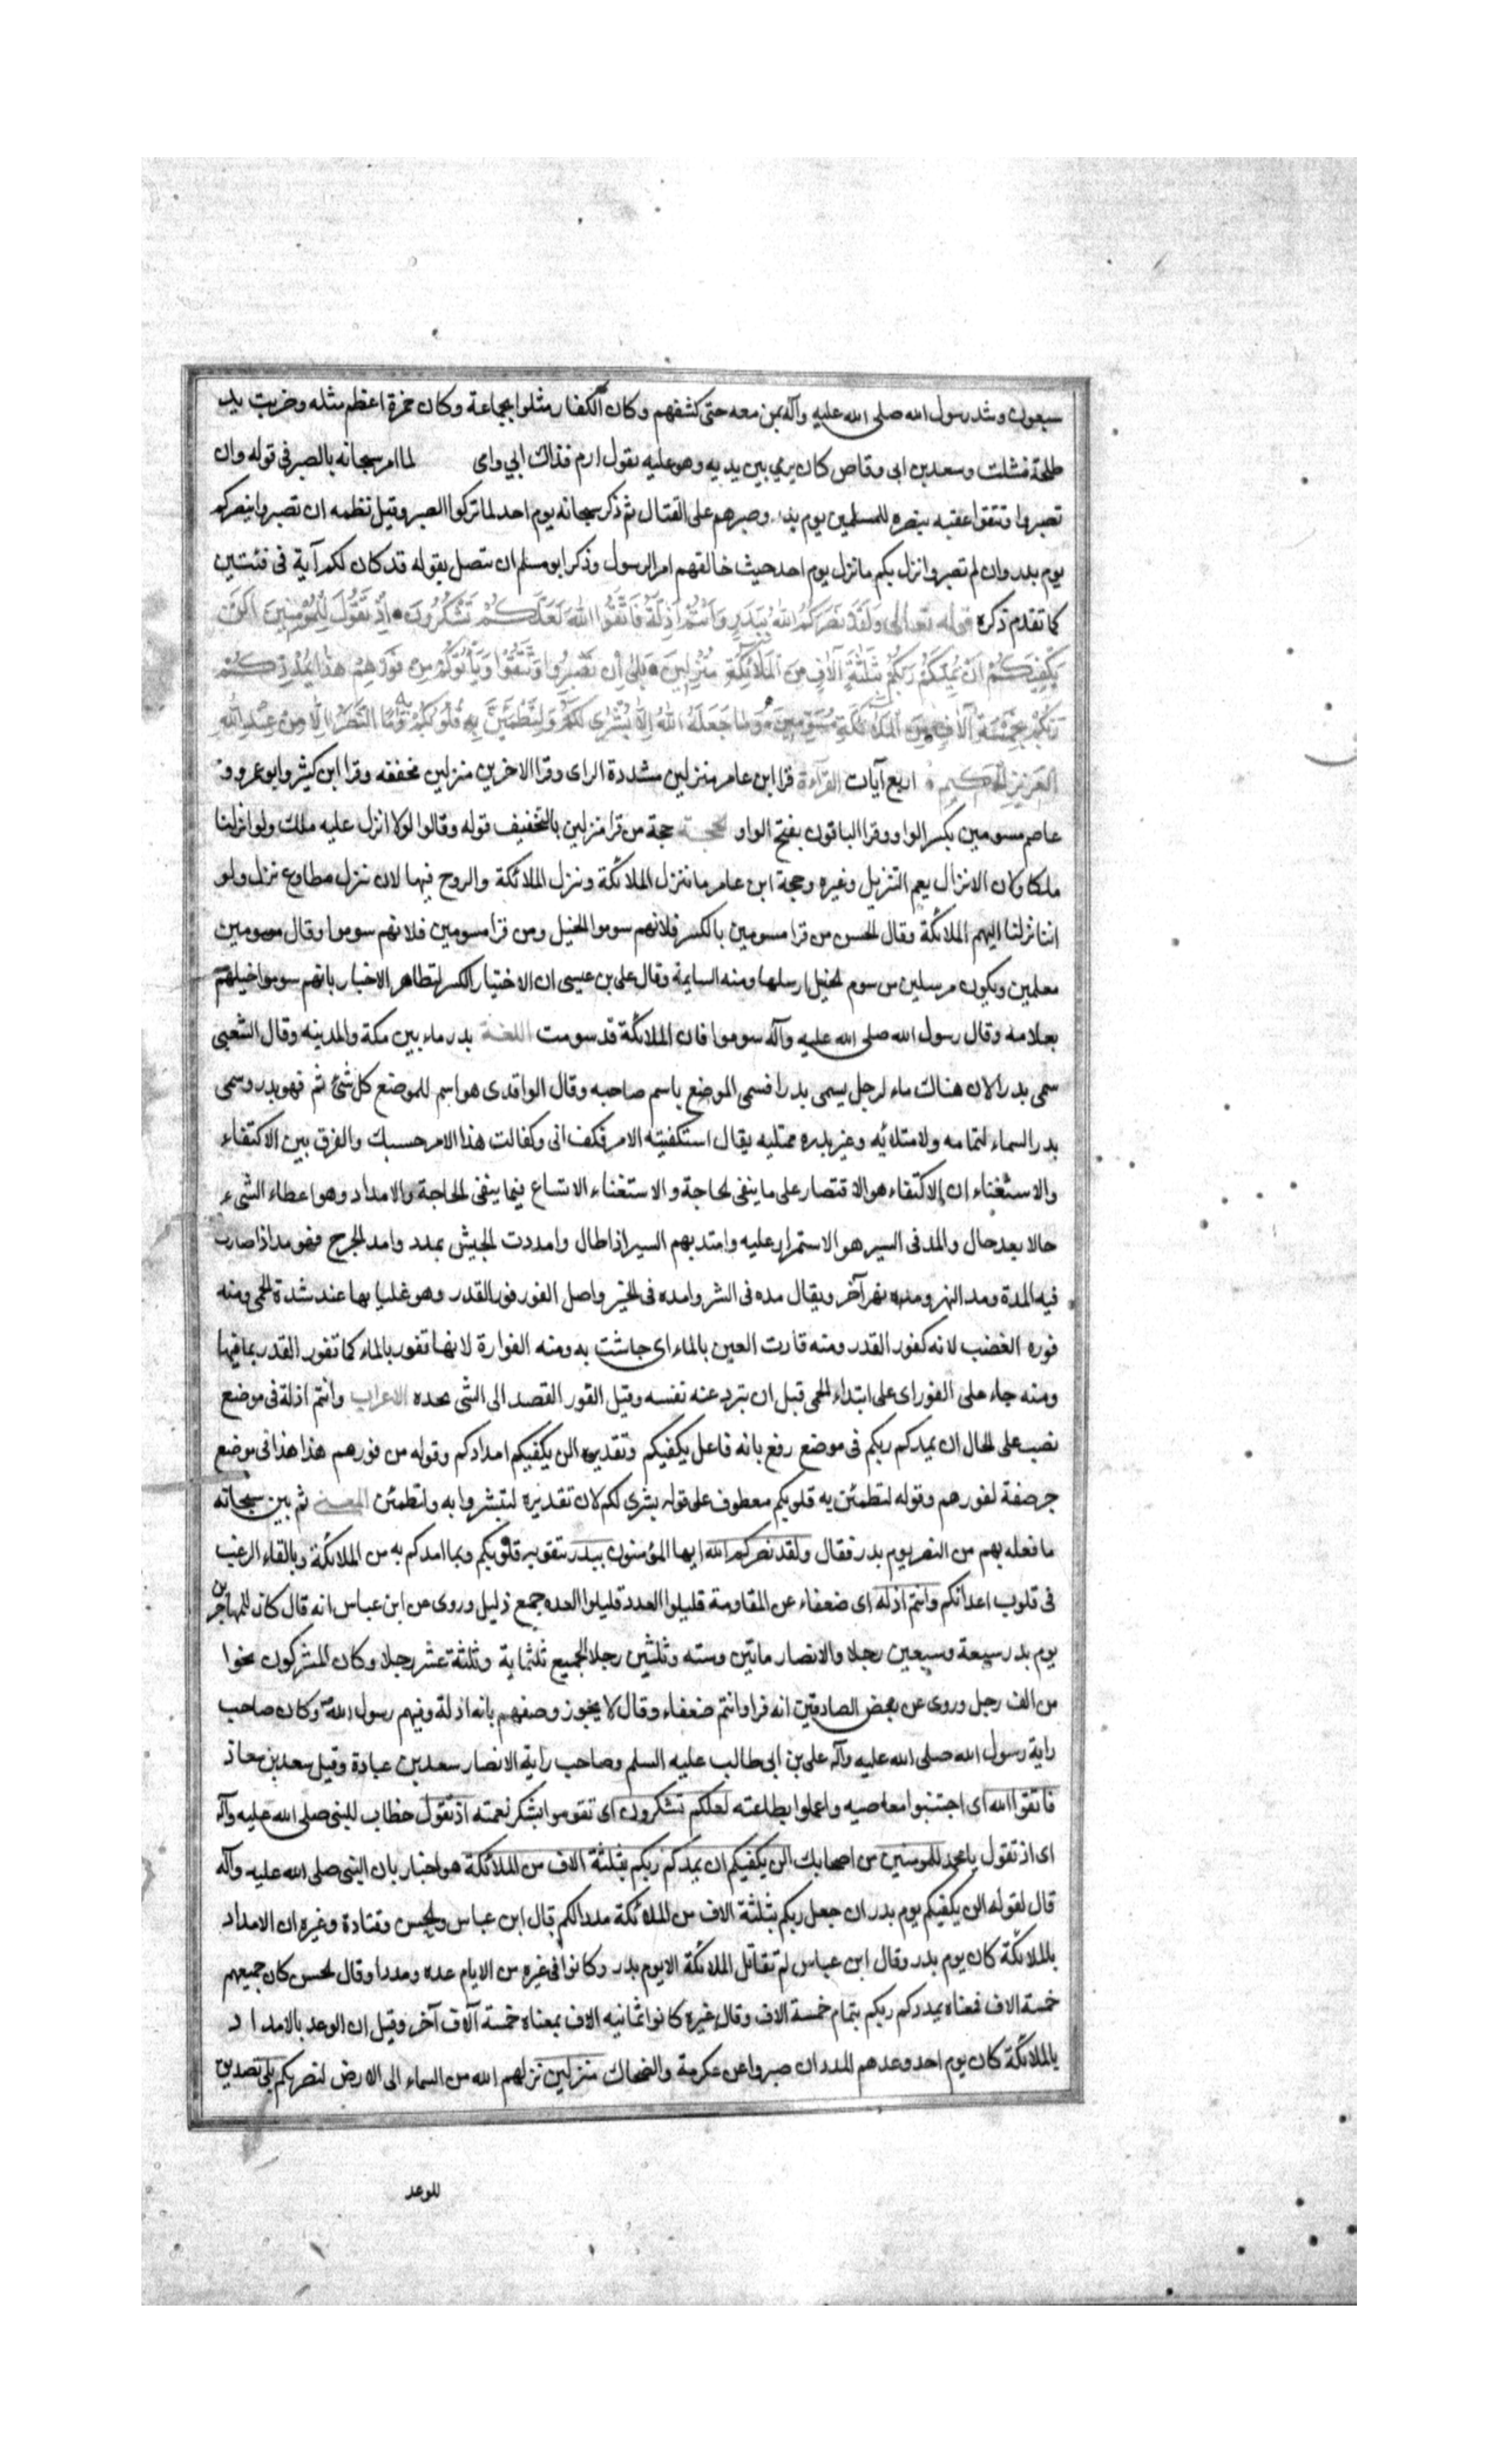 سبعون وشد رسول الله صلى الله عليه وآله بمن معه حتى كشفهم وكان الكفار مثلوا بجماعة وكان حمزة اعظم مثله وضربت يد
طلحة فشلت وسعد بن ابى وقاص كان يرمي بين يديه وهو عليه يقول ارم فذاك ابي وامى لما امر سبحانه بالصبر فى قوله وان
تصبروا وتتقوا عقبه بنصره للمسلمين يوم بدر وصبرهم على القتال ثم ذكر سبحانه يوم احد لما تركوا الصبر وقيل نظمه ان تصبروا ينصركم
يوم بدر وان لم تصبروا نزل بكم ما نزل يوم احد حيث خالفهم امر الرسول وذكر ابو مسلم ان متصل بقوله قد كان لكم آية فى فئتين
كما تقدم ذكره قوله تعالى وَلَقَدْ نَصَرَكُمُ اللهُ بِبَدْرٍ وَاَنْتُمْ اَذِلَّةٌ فَاتَّقُوا اللهَ لَعَلَّكُمْ تَشْكُرُونَ اِذْ تَقُولُ لِلْمُؤْمِنِينَ اَلَنْ
يَكْفِيَكُمْ اَنْ يُمِدَّكُمْ رَبُّكُمْ بِثَلٰثَةِ آلَافٍ مِنَ الْمَلَائِكَةِ مُنْزَلِينَ بَلٰى اِنْ تَصْبِرُوا وَتَتَّقُوا وَيَأْتُوكُمْ مِنْ فَوْرِهِمْ هٰذَا يُمْدِدْكُمْ
رَبُّكُمْ بِخَمْسَةِ آلَافٍ مِنَ الْمَلَائِكَةِ مُسَوِّمِينَ وَمَا جَعَلَهُ اللهُ اِلَّا بُشْرٰى لَكُمْ وَلِتَطْمَئِنَّ قُلُوبُكُمْ بِهِ وَمَا النَّصْرُ اِلَّا مِنْ عِنْدِ اللهِ
الْعَزِيزِ الْحَكِيمِ اربع آيات القراءة قرا ابن عامر منزلين مشددة الزاى وقرا الاخرين منزلين مخففه وقرا ابن كثير وابو عمرو و
عاصم مسومين بكسر الواو وقرا الباقون بفتح الواو الحجة حجة من قرا منزلين بالتخفيف قوله وقالوا لولا انزل عليه ملك ولو انزلنا
ملكا وكان الانزال يعم التنزيل وغيره وحجة ابن عامر ما تنزل الملائكة وتنزل الملائكة والروح فيها لان تنزل مطاوع نزل ولو
اننا نزلنا اليهم الملائكة وقال الحسن من قرا مسومين بالكسر فلانهم سوموا الخيل ومن قرا مسومين فلانهم سوموا وقال مسومين
معلمين ويكون مرسلين من سوم الخيل ارسلها ومنه السايمة وقال على بن عيسى ان الاختيار الكسر لتظاهر الاخبار بانهم سوموا خيلهم
بعلامة وقال رسول الله صلى الله عليه وآله سوموا فان الملائكة قد سومت اللغة بدر ماء بين مكة والمدينه وقال الشعبى
سمى بدرا لان هناك ماء لرجل يسمى بدرا فسمى الموضع باسم صاحبه وقال الواقدى هو اسم للموضع كل شئ تم فهو بدر وسمى
بدر السماء لتمامه ولامتلائه وعين بدره ممتليه يقال استكفيته الامر فكفانى وكفاك هذا الامر حسبك والفرق بين الاكتفاء
والاستغناء ان الاكتفاء هو الاقتصار على ما ينفى الحاجة والاستغناء الاتساع فيما ينفى الحاجة والامداد وهو اعطاء الشىء
حالا بعد حال والمد فى السير هو الاستمرار عليه وامتد بهم السير اذا طال وامددت الجيش بمدد وامد الجرح فهو مد اذا صارت
فيه المدة ومد النهر ومده نهر آخر ويقال مده فى الشر وامده فى الخير واصل الفور فور القدر وهو غليانها عند شدة الحمى ومنه
فوره الغضب لانه كفور القدر ومنه فارت العين بالماء اى جاشت به ومنه الفوارة لانها تفور بالماء كما تفور القدر بما فيها
ومنه جاء على الفور اى على ابتداء الحمى قبل ان تبرد عنه نفسه وقيل الفور القصد الى الشى بحده الاعراب وانتم اذلة فى موضع
نصب على الحال ان يمدكم ربكم فى موضع رفع بانه فاعل يكفيكم وتقديره الن يكفيكم امدادكم وقوله من فورهم هذا هذا فى موضع
جر صفة لفورهم وقوله لتطمئن به قلوبكم معطوف على قوله بشرى لكم لان تقديره لتبشروا به ولتطمئن المعنى ثم بين سبحانه
ما فعله بهم من النصر يوم بدر فقال ولقد نصركم الله ايها المؤمنون ببدر بتقوية قلوبكم وبما امدكم به من الملائكة وبالقاء الرعب
فى قلوب اعدائكم وانتم اذله اى ضعفاء عن المقاومة قليلوا العدد قليلوا العده جمع ذليل وروى عن ابن عباس انه قال كان المهاجرين
يوم بدر سبعة وسبعين رجلا والانصار ماتين وسته وثلثين رجلا الجميع ثلثماية وثلثة عشر رجلا وكان المشركون نحوا
من الف رجل وروى عن بعض الصادقين انه قرا وانتم ضعفاء وقال لا يجوز وصفهم بانه اذلة وفيهم رسول الله وكان صاحب
راية رسول الله صلى الله عليه وآله على بن ابى طالب عليه السلم وصاحب راية الانصار سعد بن عبادة وقيل سعد بن معاذ
فاتقوا الله اى اجتنبوا معاصيه واعملوا بطاعته لعلكم تشكرون اى تقوموا بشكر نعمته اذ تقول خطاب للنبى صلى الله عليه وآله
اى اذ تقول يا محمد للمومنين من اصحابك الن يكفيكم ان يمدكم ربكم بثلثة الاف من الملائكة هو اخبار بان النبى صلى الله عليه وآله
قال لقوله الن يكفيكم يوم بدر ان جعل ربكم بثلثة الاف من الملائكة مددا لكم قال ابن عباس والحسن وقتادة وغيره ان الامداد
بالملائكة كان يوم بدر وقال ابن عباس لم تقاتل الملائكة الا يوم بدر وكانوا فى غيره من الايام عده ومددا وقال الحسن كان جميعهم
خمسة الاف فمعناه يمددكم ربكم بتمام خمسة الاف وقال غيره كانوا ثمانيه الاف بمعناه خمسة آلاف آخر وقيل ان الوعد بالامداد
بالملائكة كان يوم احد وعدهم المدد ان صبروا عن عكرمة والضحاك منزلين نزلهم الله من السماء الى الارض لنصرتكم بلى تصديق
للوعد